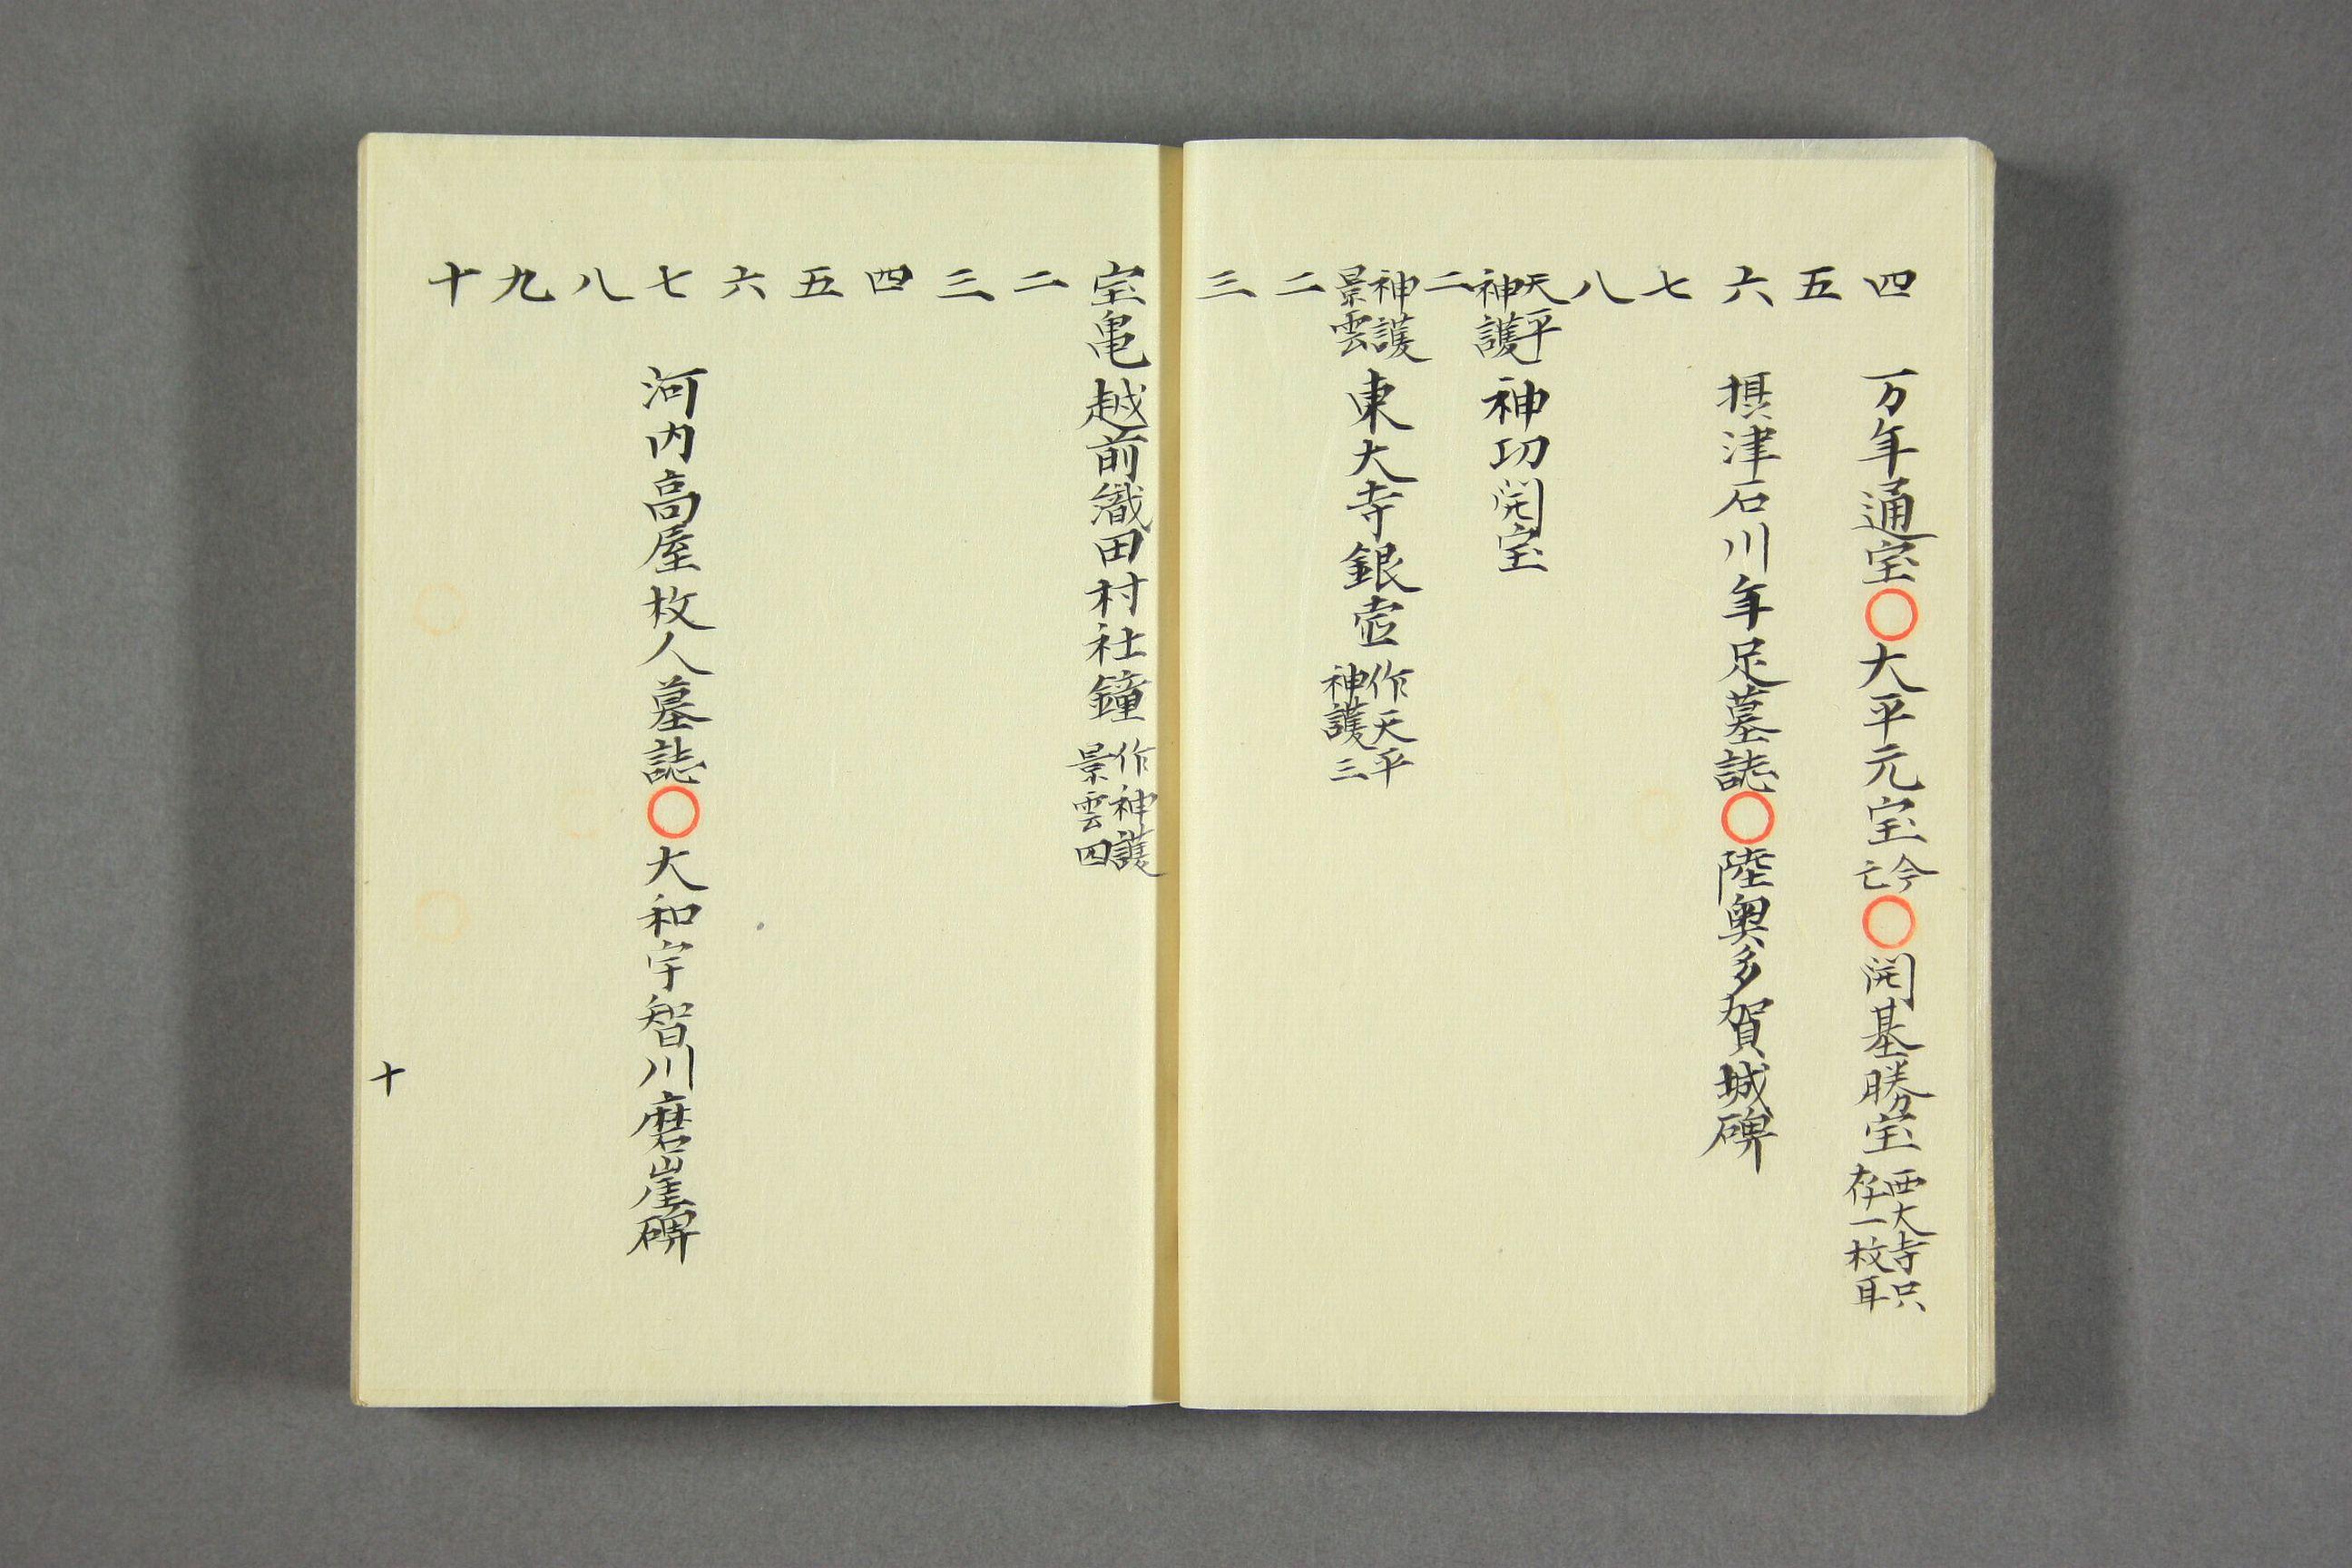 四 万年通宝〇大平元宝 今亡〇開基勝宝 西大寺只存一枚耳
五
六 摂津石川年足墓誌〇陸奥多賀城碑
七
八
天平神護 神功開宝
二
神護景雲 東大寺銀壺 作天平神護三
二
三
宝亀 越前織田村社鐘 作神護景雲四
二
三
四
五
六
七 河内高屋枚人墓誌〇大和宇智川磨崖碑
八
九
十
十